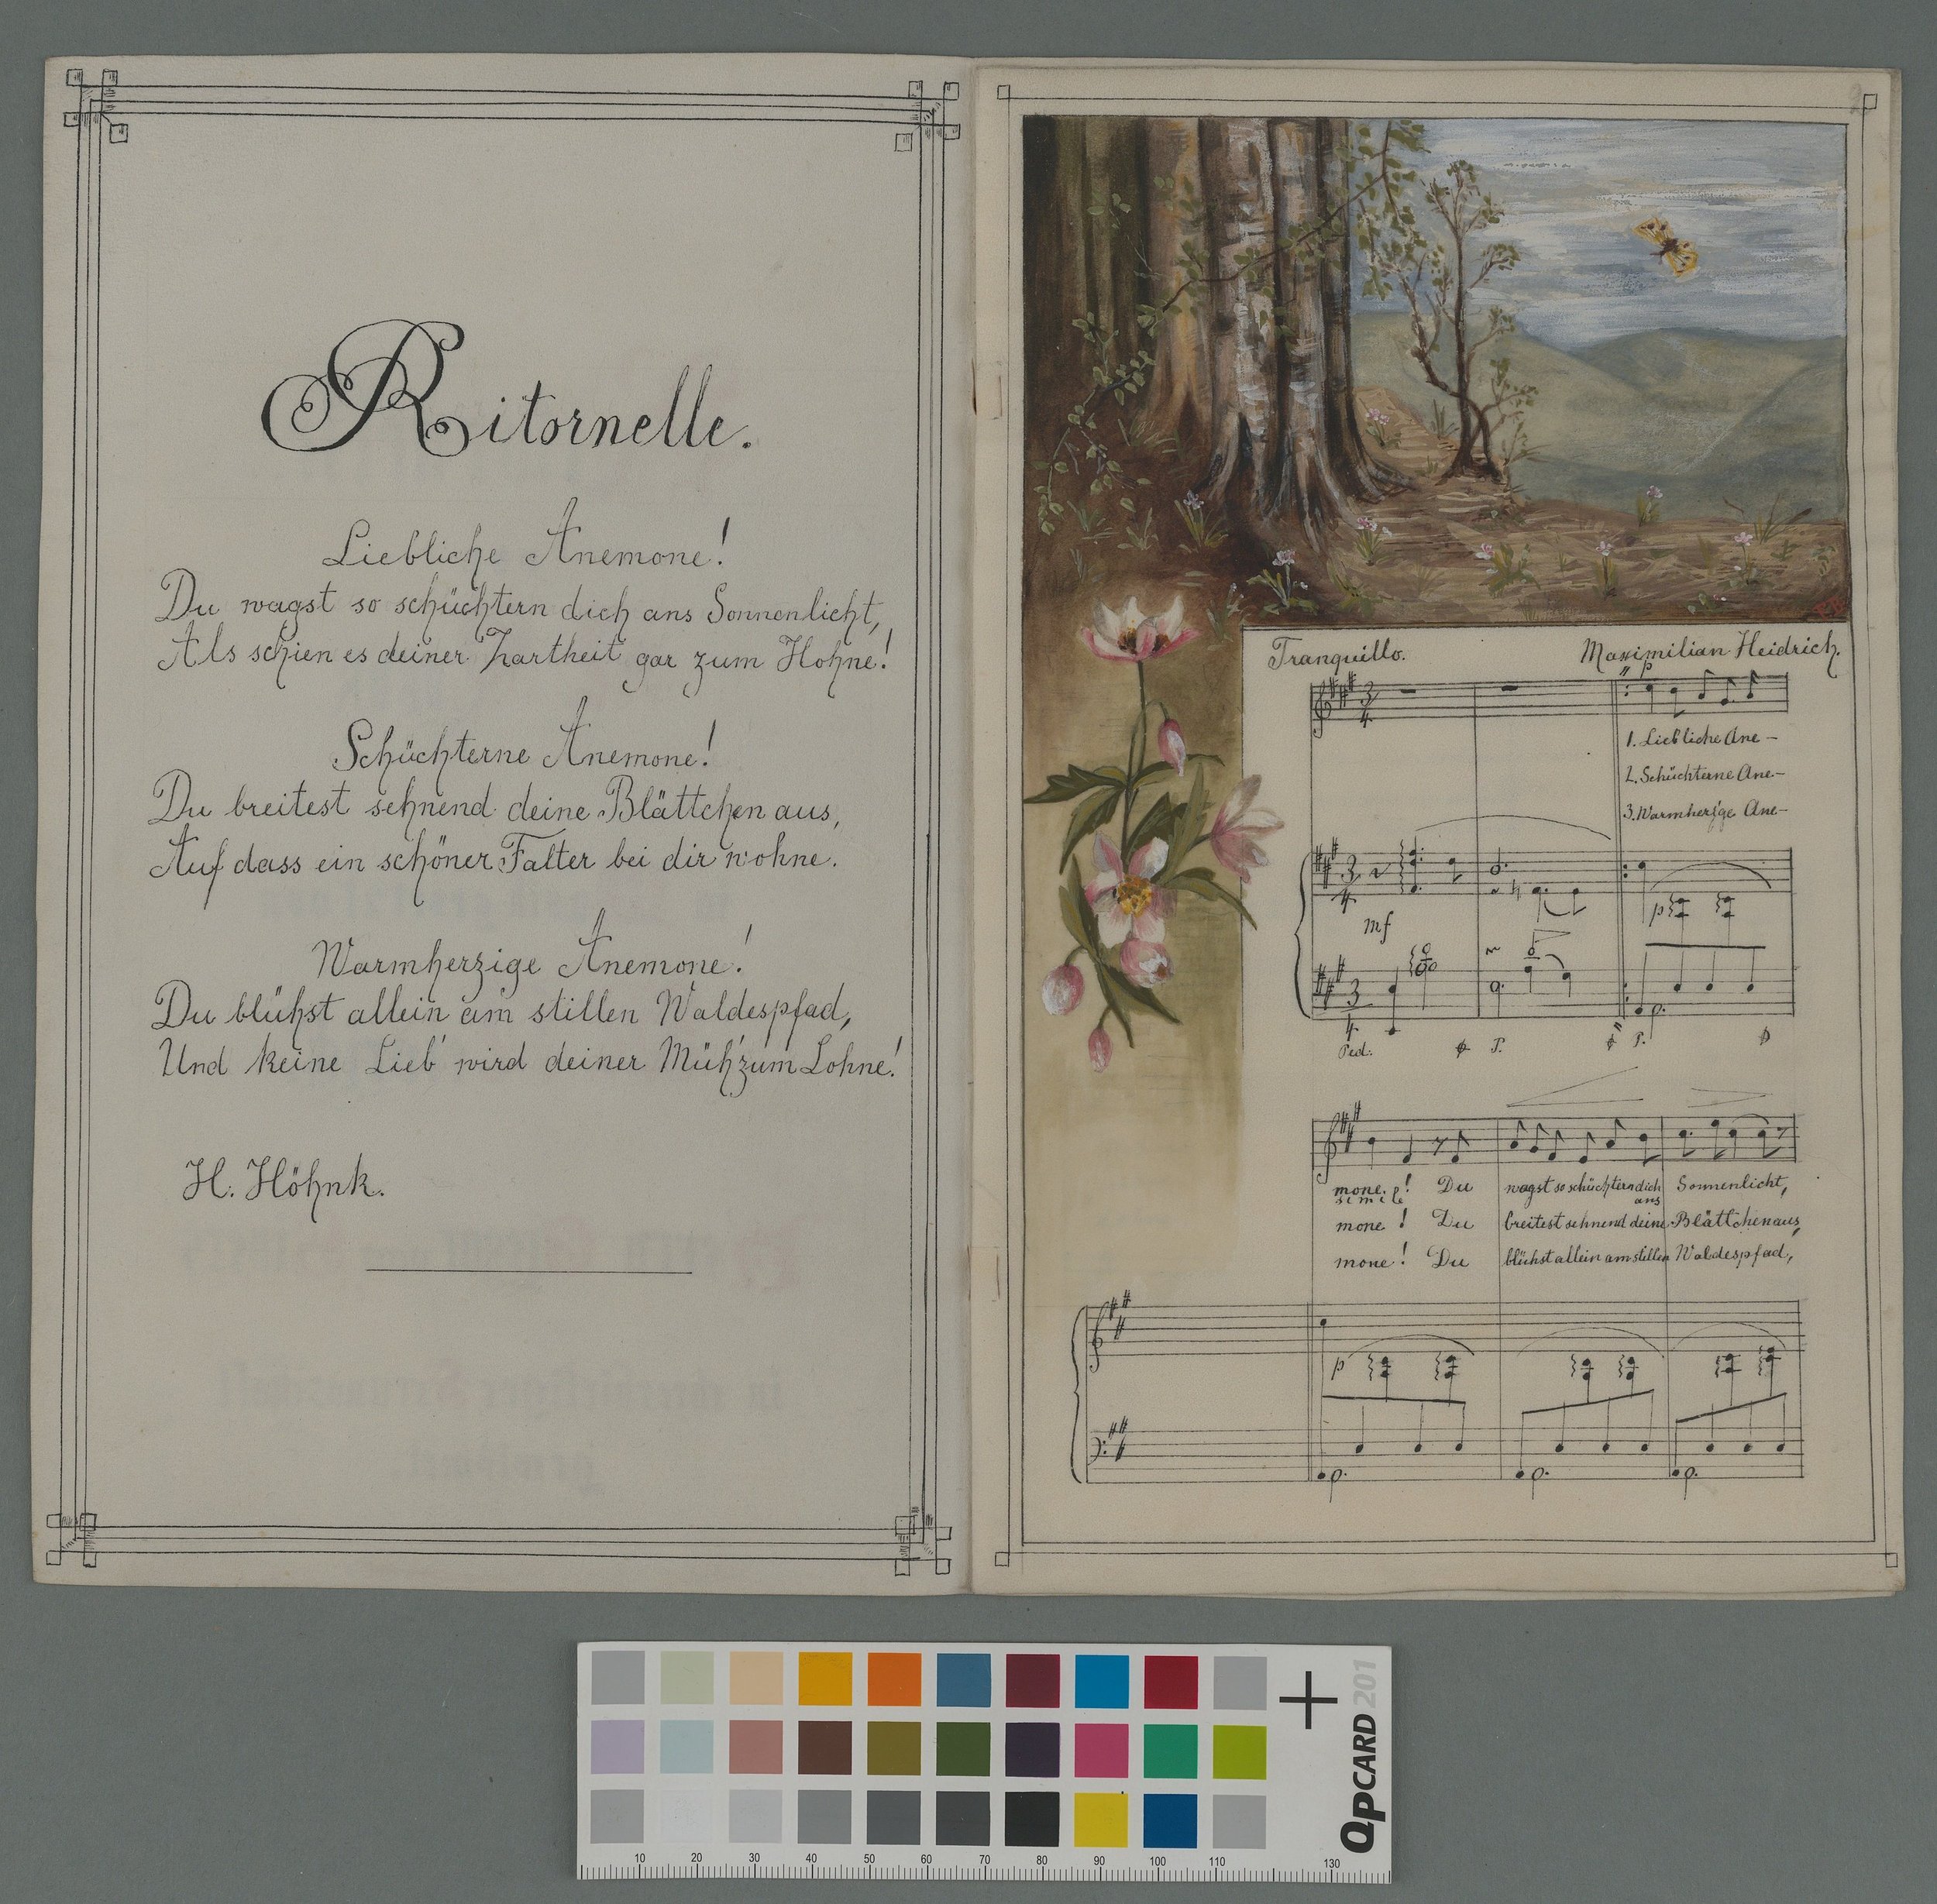 Ritornelle.
Liebliche Anemone!
Du wagst so schüchtern dich ans Sonnenlicht,
Als schien es deiner Zartheit gar zum Hohne!
Schüchterne Anemone!
Du breitest sehnend deine Blättchen aus,
Auf dass ein schöner Falter bei dir wohne.
Warmherzige Anemone!
Du blühst allein am stillen Waldespfad,
Und keine Lieb' wird deiner Müh' zum Lohne!
H. Höhnk.
Tranquillo. Maximilian Heidrich.
p
1. Liebliche Ane-
2. Schüchterne Ane-
3. Warmherz'ge Ane-
mf p
Ped. P. P.
mone! Du wagst so schüchtern dich ans Sonnenlicht,
simile
mone! Du breitest sehnend deine Blättchen aus,
mone! Du blühst allein am stillen Waldespfad,
p
QPCARD 201
10 20 30 40 50 60 70 80 90 100 110 130